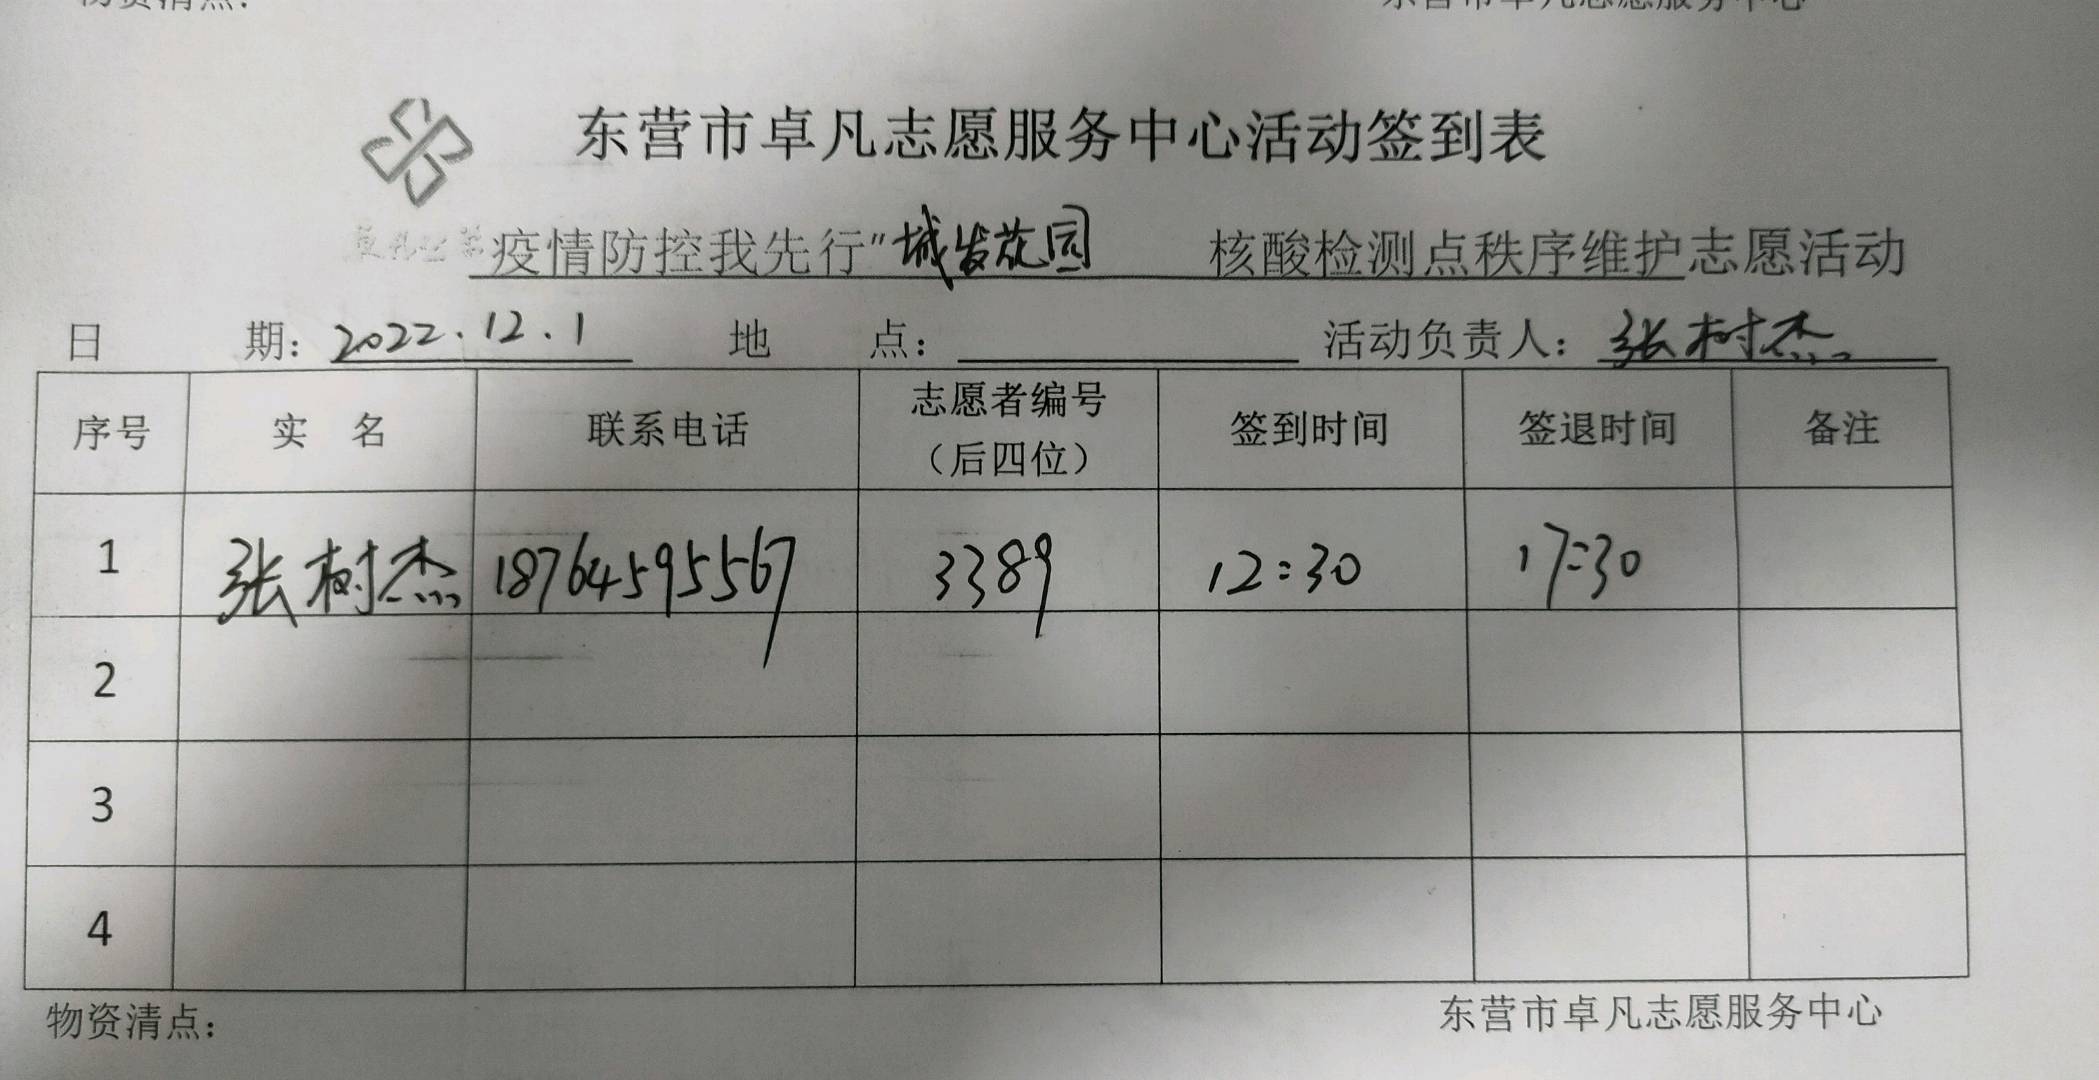 物资清点：
东营市卓凡志愿服务中心
东营市卓凡志愿服务中心活动签到表
疫情防控我先行"城发花园 核酸检测点秩序维护志愿活动
日 期：2022.12.1 地 点： 活动负责人：张树杰
序号 实 名 联系电话 志愿者编号（后四位） 签到时间 签退时间 备注
1 张树杰 18764595567 3389 12:30 17:30
2
3
4
物资清点：
东营市卓凡志愿服务中心